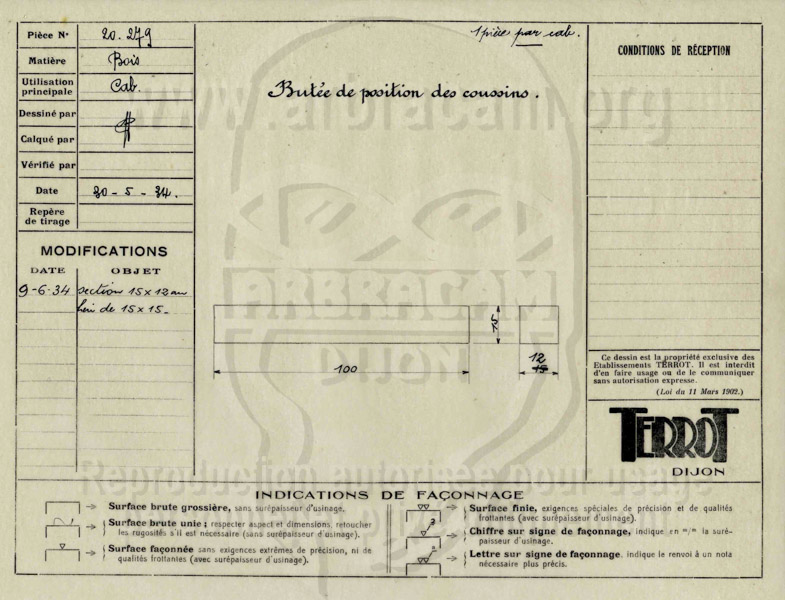 Pièce Nº 20.279
Matière Bois
Utilisation principale Cab.
Dessiné par
Calqué par
Vérifié par
Date 30-5-34.
Repère de tirage
MODIFICATIONS
DATE OBJET
9-6-34 section 15x12 au
lieu de 15x15-
1 pièce par cab.
Butée de position des coussins.
100
15
12
15
CONDITIONS DE RÉCEPTION
Ce dessin est la propriété exclusive des
Etablissements TERROT. Il est interdit
d'en faire usage ou de le communiquer
sans autorisation expresse.
(Loi du 11 Mars 1902.)
TERROT
DIJON
INDICATIONS DE FAÇONNAGE
Surface brute grossière, sans surépaisseur d'usinage.
Surface brute unie ; respecter aspect et dimensions, retoucher
les rugosités s'il est nécessaire (sans surépaisseur d'usinage).
Surface façonnée sans exigences extrêmes de précision, ni de
qualités frottantes (avec surépaisseur d'usinage).
Surface finie, exigences spéciales de précision et de qualités
frottantes (avec surépaisseur d'usinage).
Chiffre sur signe de façonnage, indique en m/m la suré-
paisseur d'usinage.
Lettre sur signe de façonnage, indique le renvoi à un nota
nécessaire plus précis.
www.arbracam.org
ARBRACAM
DIJON
Reproduction autorisée pour usage